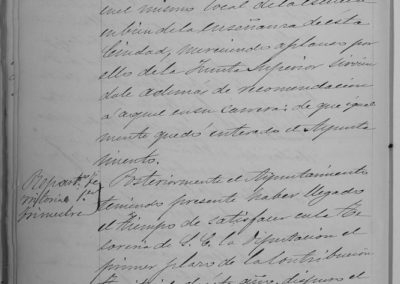 en el mismo local de la escuela
en bien de la enseñanza de esta
Ciudad, mereciendo aplausos por
ello de la Junta Superior sirvien
dole ademas de recomendacion
a aquel en su carrera: de que igual
mente quedó enterado el Ayunta
miento.
Posteriormente el Ayuntamiento
teniendo presente haber llegado
el tiempo de satisfacer en la Te
sorería de S. E. la Diputacion el
primer plazo de la Contribucion
año, dispuso el
trimestre